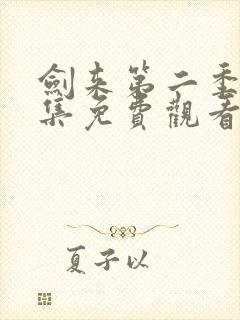 劍来第二季
集免費觀看
夏子以